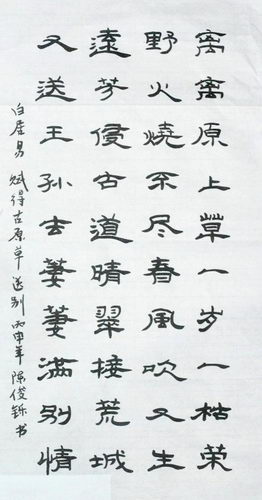 离离原上草一岁一枯荣
野火燒不尽春風吹又生
遠芳侵古道晴翠接荒城
又送王孙去萋萋满别情
白居易 赋得古原草送别 丙申年 陈俊铄 书